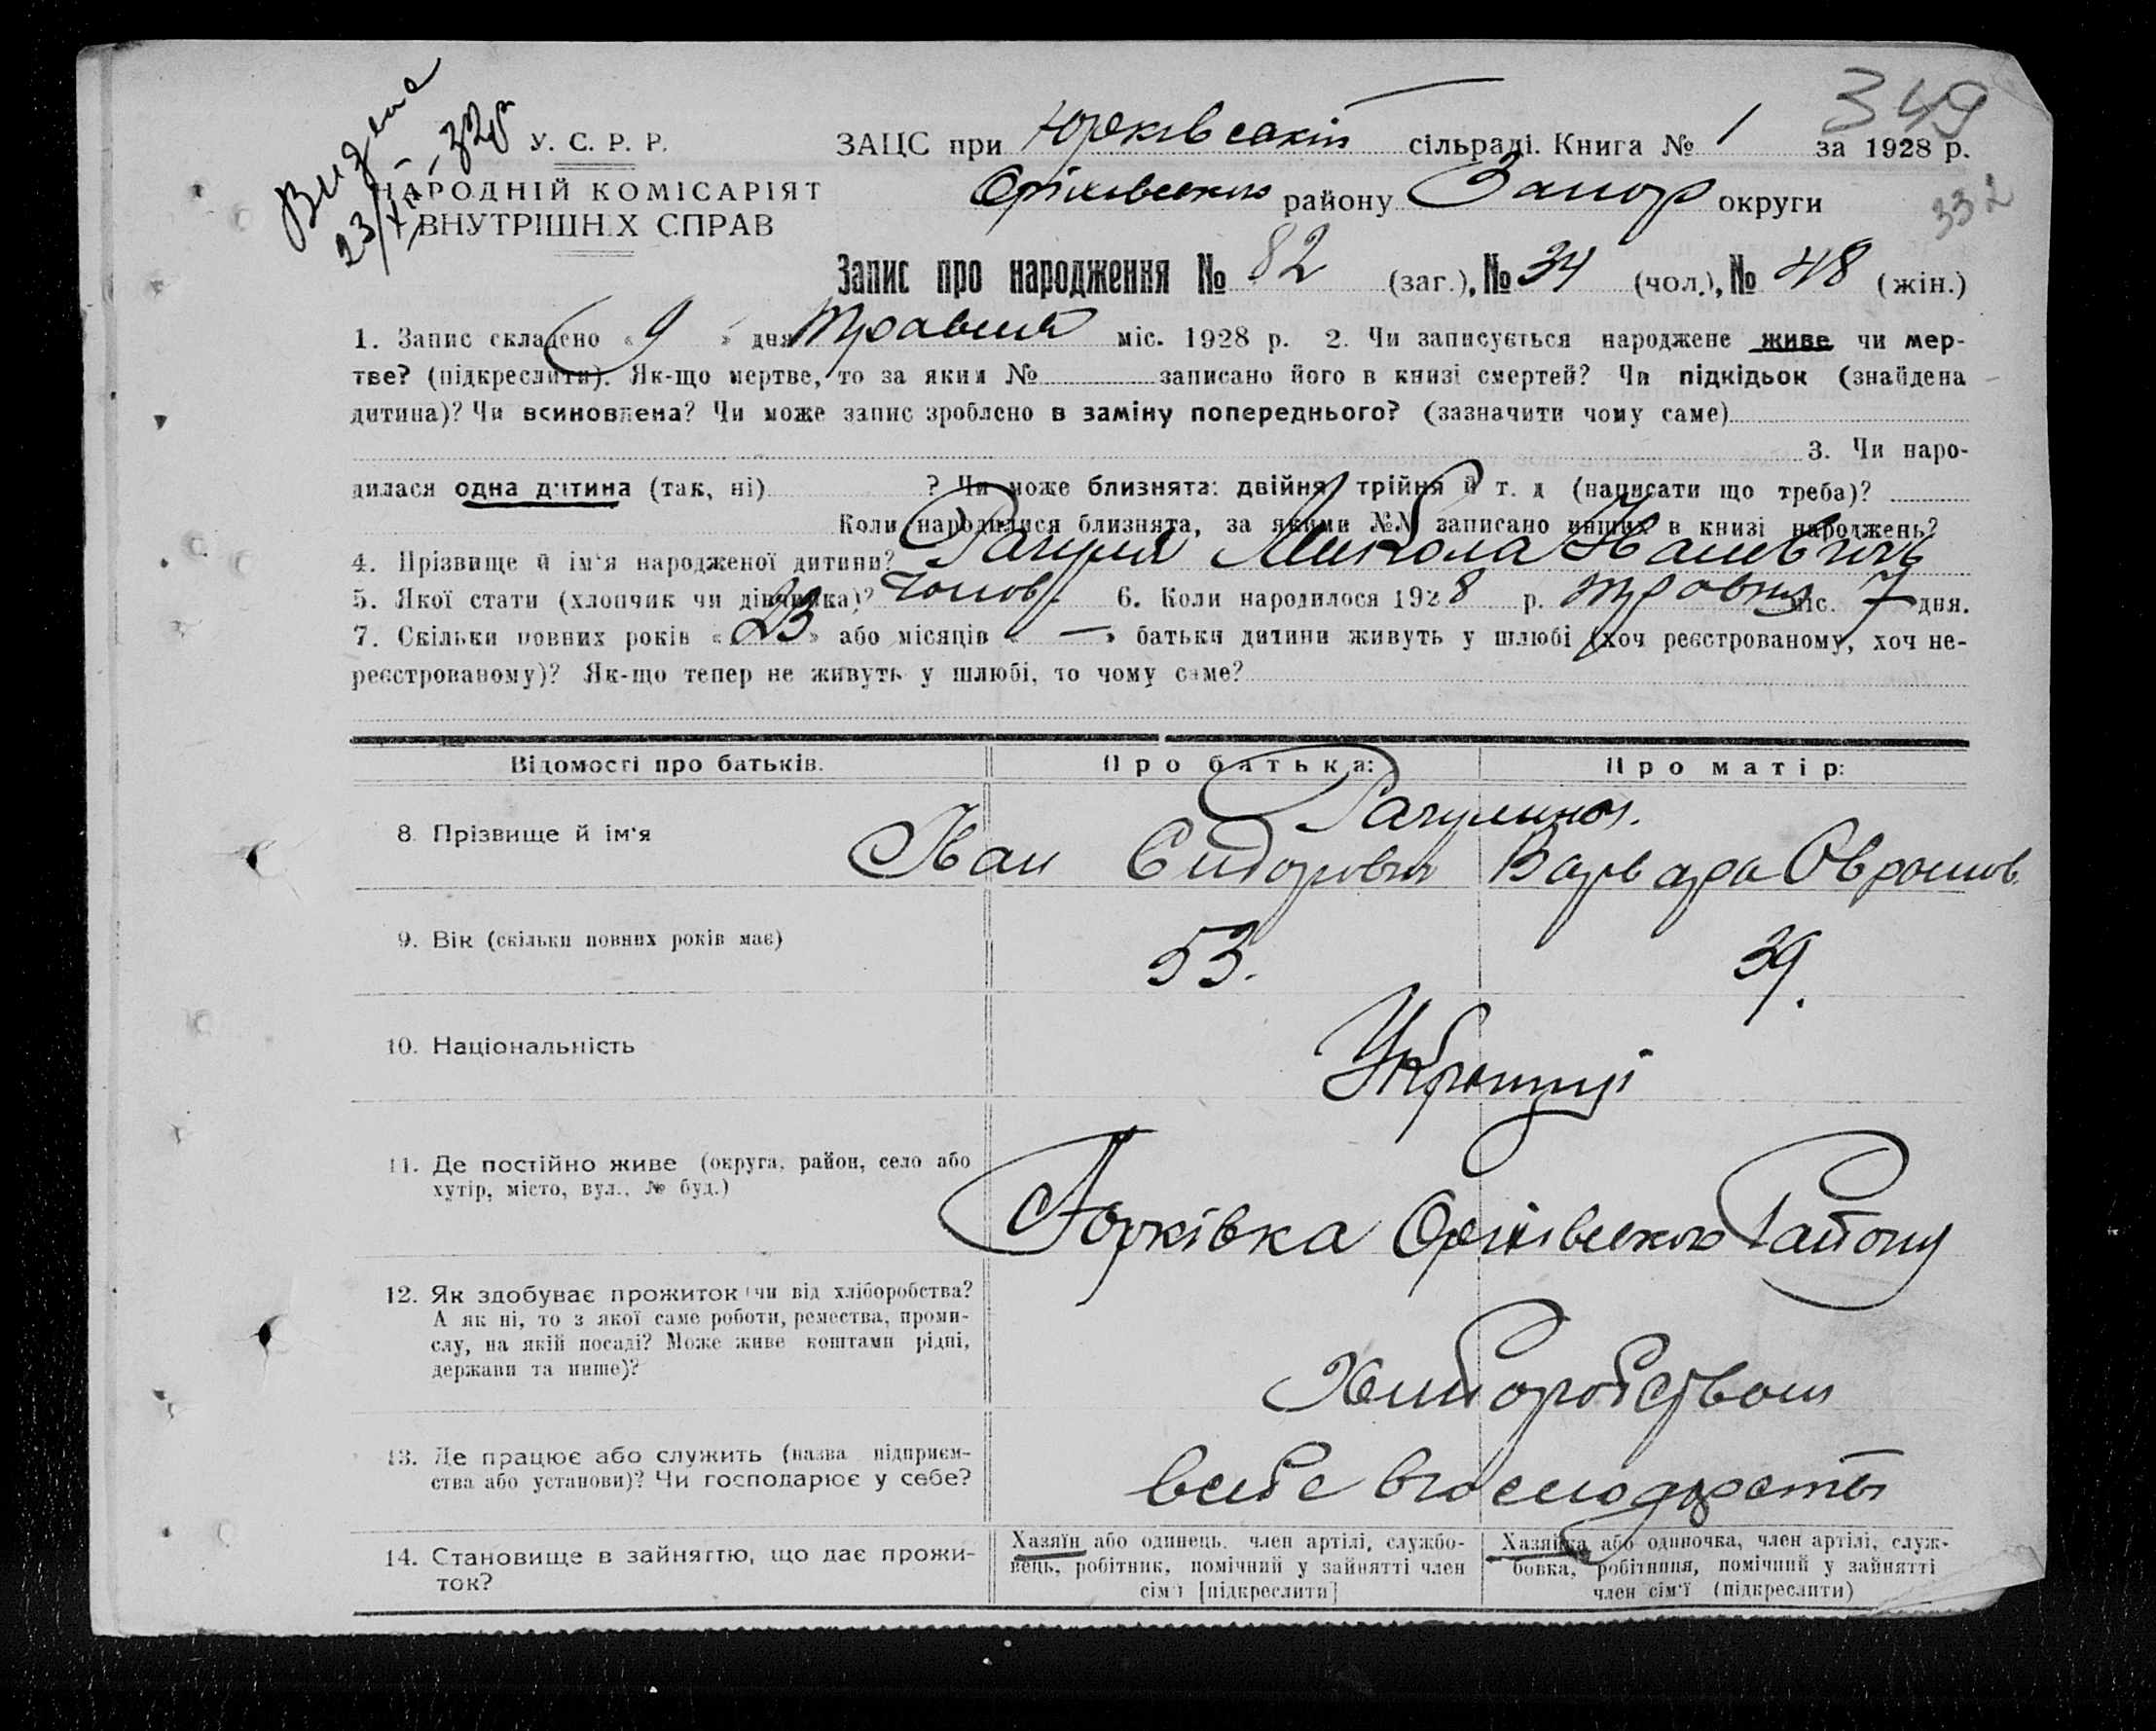 349
Видана
У. С. Р. Р.
ЗАЦС при Юрківській сільраді. Книга № 1 за 1928 р.
332
НАРОДНІЙ КОМІСАРІЯТ
ВНУТРІШНІХ СПРАВ
Оріхівського району Запор округи
Запис про народження № 82 (заг.), № 34 (чол.), № 48 (жін.)
1. Запис складено « 9 » дня травня міс. 1928 р. 2. Чи записується народжене живе чи мер-
тве? (підкреслити). Як-що мертве, то за яким № записано його в книзі смертей? Чи підкідьок (знайдена
дитина)? Чи всиновлена? Чи може запис зроблено в заміну попереднього? (зазначити чому саме)
3. Чи наро-
дилася одна дитина (так, ні) ? Чи може близнята: двійня, трійня й т. д (написати що треба)?
Коли народилися близнята, за якими №№ записано инших в книзі народжень?
4. Прізвище й ім'я народженої дитини? Рагуля Микола Іванович
5. Якої стати (хлопчик чи дівчинка)? чолов. 6. Коли народилося 1928 р. травня міс. 7 дня.
7. Скільки повних років « 23 » або місяців « — » батьки дитини живуть у шлюбі (хоч реєстрованому, хоч не-
реєстрованому)? Як-що тепер не живуть у шлюбі, то чому саме?
Відомості про батьків. Про батька: Про матір:
8. Прізвище й ім'я
Іван Сидорович Варвара
9. Вік (скільки повних років має) 53. 39.
10. Національність Українці
11. Де постійно живе (округа, район, село або
хутір, місто, вул., № буд.)
Юрківка Оріхівського Району
12. Як здобуває прожиток: чи від хліборобства?
А як ні, то з якої саме роботи, ремества, проми-
слу, на якій посаді? Може живе коштами рідні,
держави та инше)?
Хліборобством
13. Де працює або служить (назва підприєм-
ства або установи)? Чи господарює у себе?
в себе в господарстві
14. Становище в зайняттю, що дає прожи-
ток?
Хазяїн або одинець, член артілі, службо-
вець, робітник, помічний у зайнятті член
сім'ї [підкреслити]
Хазяйка або одиночка, член артілі, служ-
бовка, робітниця, помічний у зайнятті
член сім'ї (підкреслити)